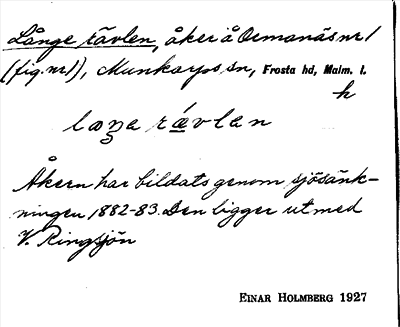 Långe rävlen, åker å Ormanäs nr 1
(fig. nr 1), Munkarps sn, Frosta hd, Malm. l.
h
Åkern har bildats genom sjösänk-
ningen 1882-83. Den ligger ut med
V. Ringsjön
EINAR HOLMBERG 1927